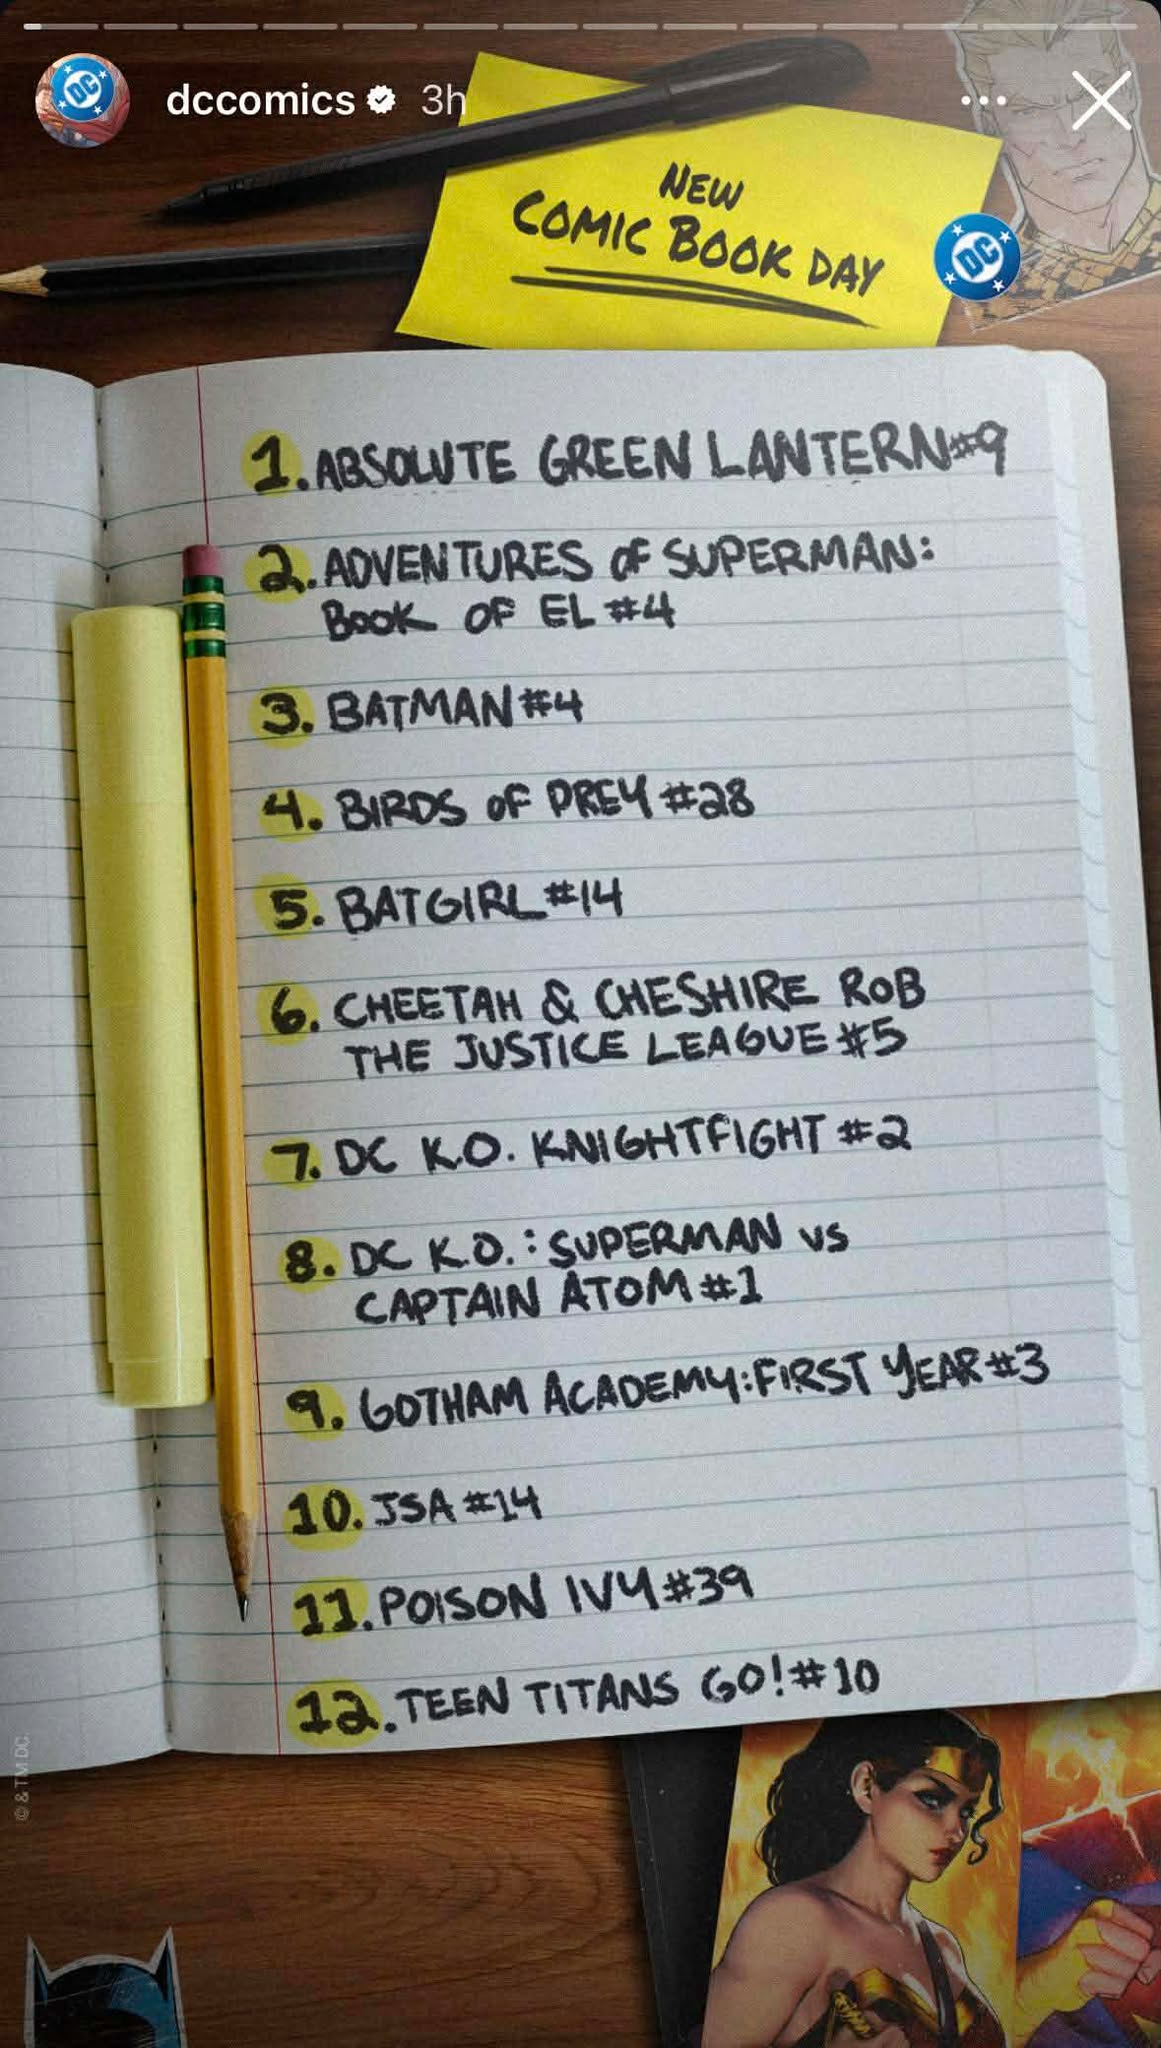 dccomics 3h
DC
NEW
COMIC BOOK DAY
DC
1. ABSOLUTE GREEN LANTERN #9
2. ADVENTURES OF SUPERMAN:
BOOK OF EL #4
3. BATMAN #4
4. BIRDS OF PREY #28
5. BATGIRL #14
6. CHEETAH & CHESHIRE ROB
THE JUSTICE LEAGUE #5
7. DC K.O. KNIGHTFIGHT #2
8. DC K.O.: SUPERMAN VS
CAPTAIN ATOM #1
9. GOTHAM ACADEMY: FIRST YEAR #3
10. JSA #14
11. POISON IVY #39
12. TEEN TITANS GO! #10
© & TM DC